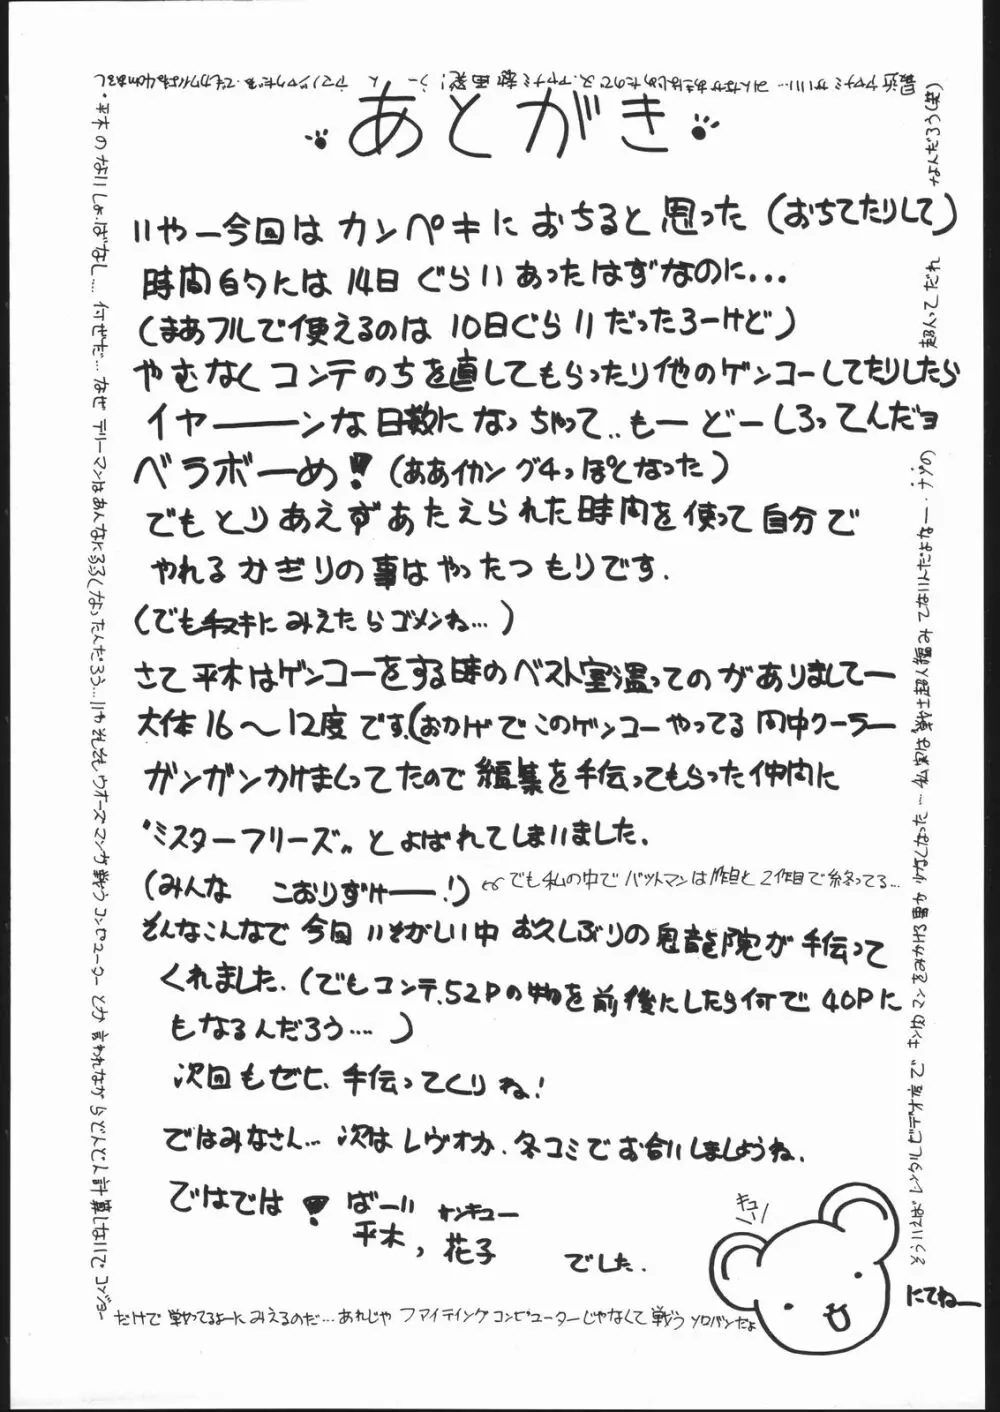 あとがき
いやー今回はカンペキにおちると思った(おちてたりして)
時間的には14日ぐらいあったはずなのに...
(まあフルで使えるのは10日ぐらいだったろーけど)
やむなくコンテのちを直してもらったり他のゲンコーしてたりしたら
イヤーーンな日数になっちゃって..もーどーしろってんだヨ
ベラボーめ!(ああイカン グチっぽくなった)
でもとりあえずあたえられた時間を使って自分で
やれるかぎりの事はやったつもりです.
(でも手ヌキにみえたらゴメンね...)
さて平木はゲンコーをする時のベスト室温ってのがありましてー
大体16〜12度です.(おかげでこのゲンコーやってる間中クーラー
ガンガンかけまくってたので編集を手伝ってもらった仲間に
"ミスターフリーズ"とよばれてしまいました.
(みんな こおりずけー!)
でも私の中でバットマンは1作目と2作目で終ってる...
そんなこんなで今回いそがしい中お久しぶりの鬼龍院が手伝って
くれました.(でもコンテ.52Pの物を前後にしたら何で40Pに
もなるんだろう....)
次回もぜひ、手伝ってくりね!
ではみなさん...次はレヴォか、冬コミでお会いしましょうね.
ではでは! ばーい
サンキュー
平木,花子
でした.
キュー
にてねー
・平木のないしょばなし.... 何ぜだ...なぜデリーマンはあんなに弱くなったんだろう...いやそれよもウォーズマンが戦うコンピューターとか言われながらどんどん計算しないでコンジョー
だけで戦ってるよーにみえるのだ...あれじゃファイティングコンピューターじゃなくて戦うソロバンだよ
そういえばレンタルビデオ店でキン肉マンをみかける事が少なくなった...私実は"戦士超人編みてないんだよなー.ナゾの
超人ってだれ
なんだろう(笑)